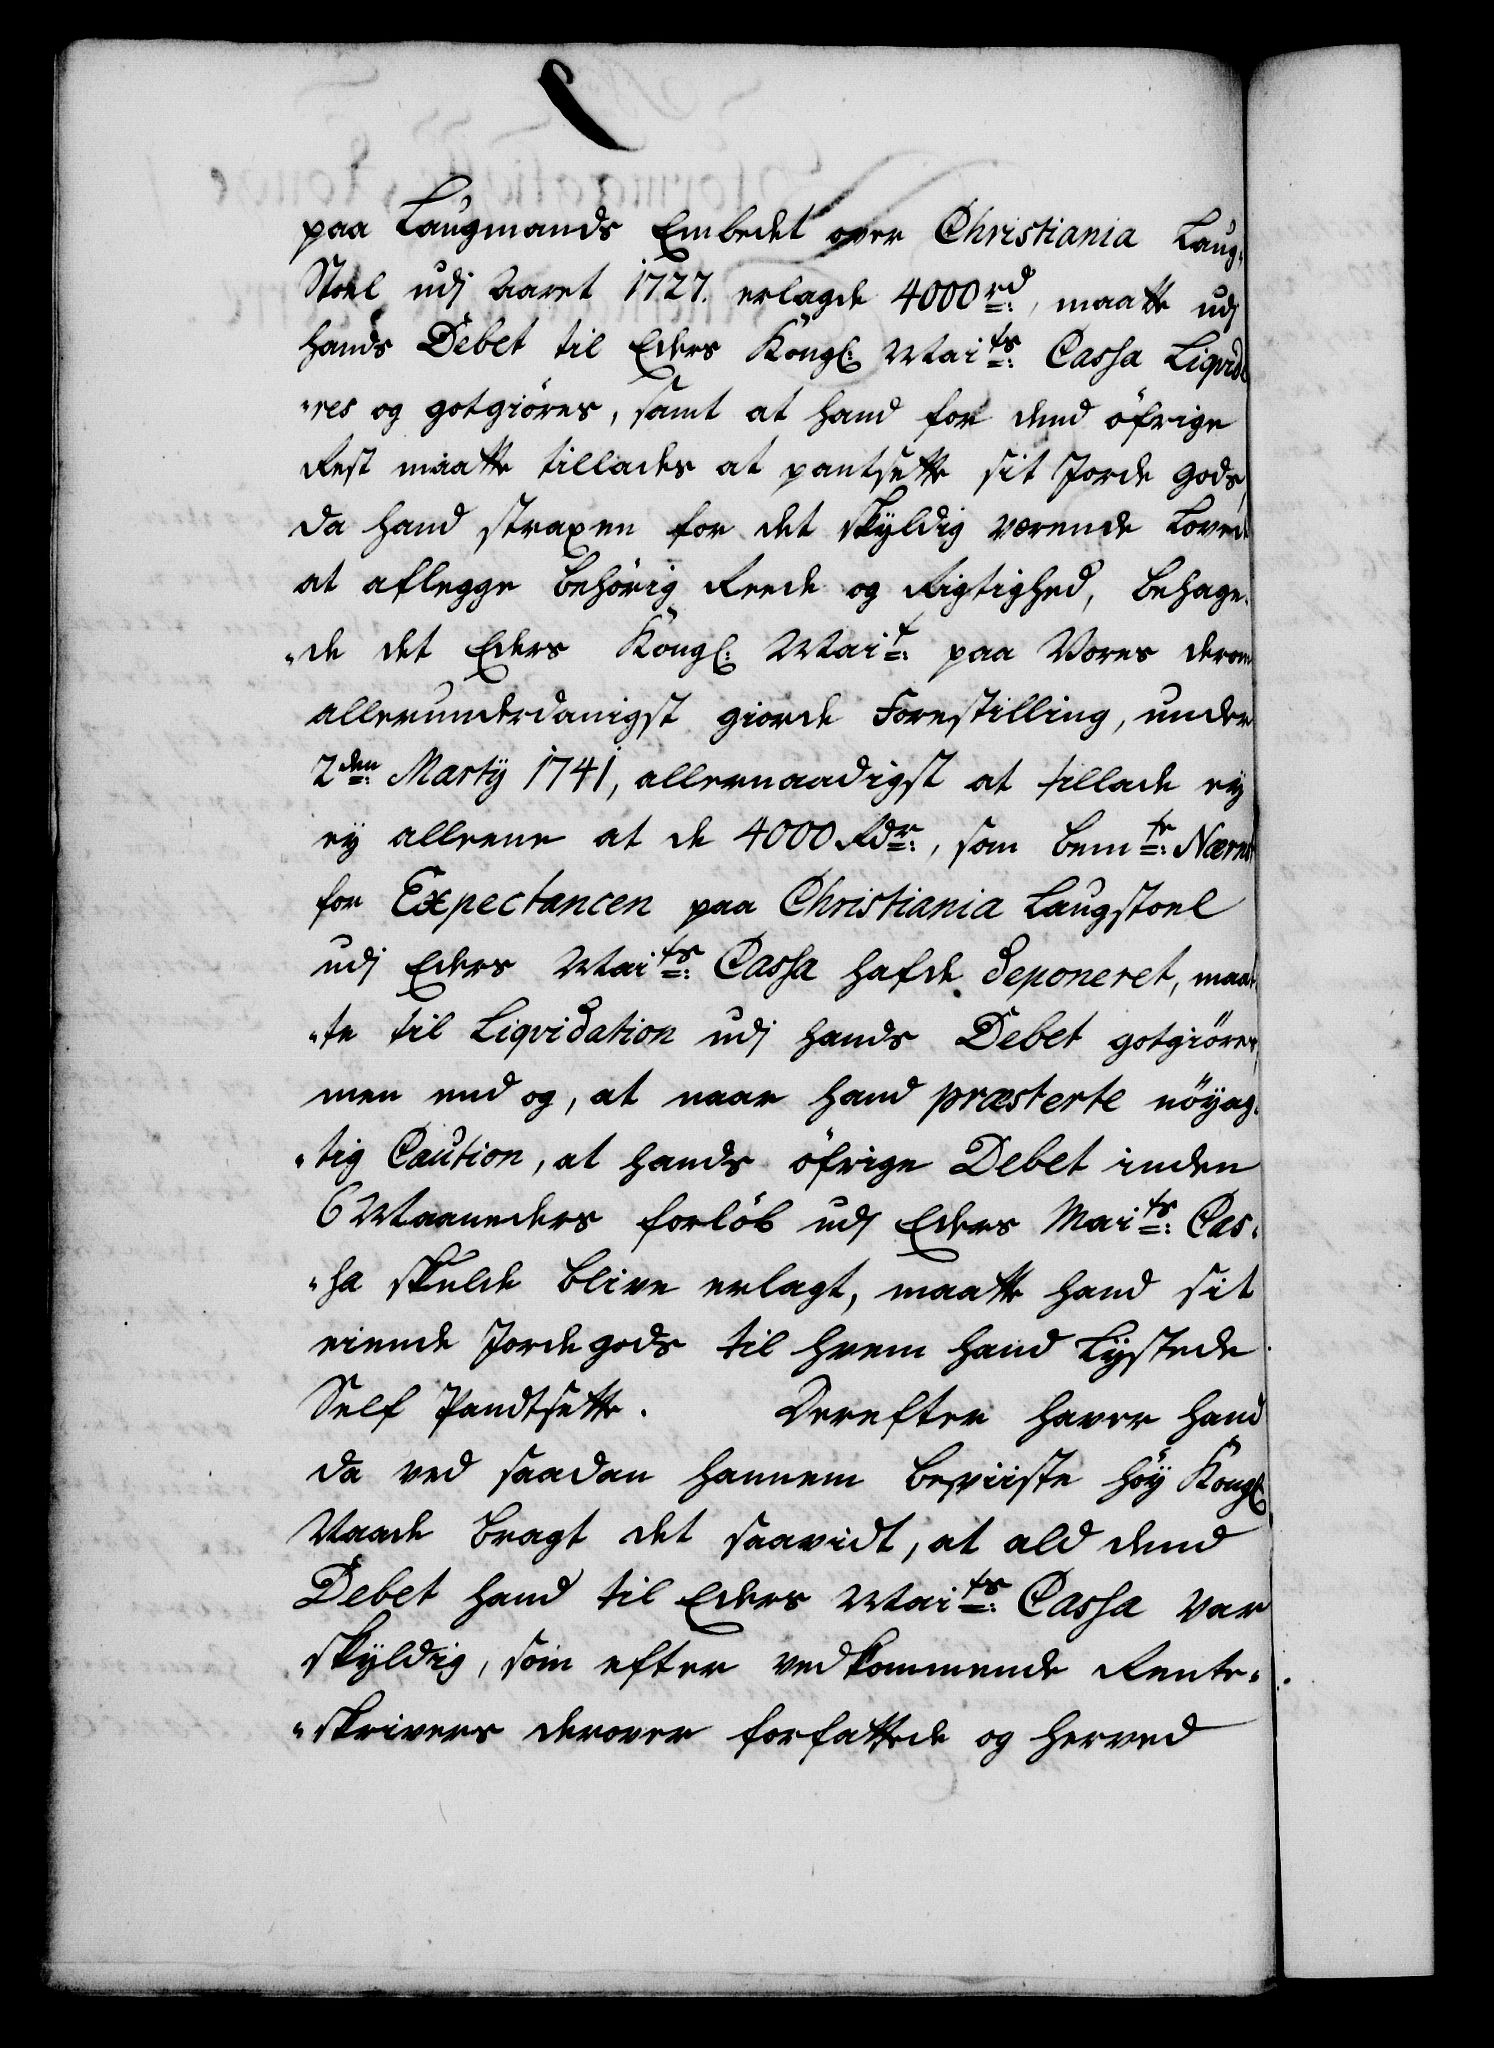 paa Laugmands Embedet over Christiania Laug-
Stoel udj Aaret 1727. erlagde 4000 rd:, maatte udj
hands Debet til Eders Kongl: Maits: Cassa Liqvide
"res og gotgiöres, samt at hand for dend öfrige
Rest maatte tillades at pantsette sit Jorde gods,
da hand straxen for det skÿldig værende Lovede
at aflegge behörig Reede og Rigtighed, behage-
"de det Eders Kongl: Mait: paa Vores derom
allerunderdanigst giorde Forestilling, under
2den: Martÿ 1741, allernaadigst at tillade eÿ
eÿ alleene at de 4000 Rdr:, som bemte: Nærne
for Expectancen paa Christiania Laugstoel
udj Eders Maits: Cassa hafde deponeret, maat-
"te til Liqvidation udj hands Debet gotgiöres,
men end og, at naar hand præsterte nöÿag-
"tig Caution, at hands öfrige Debet inden
6 Maaneders forlöb udj Eders Maits: Cas-
"sa skulde blive erlagt, maatte hand sit
eiende Jordegods til hvem hand Lÿstede
Self Pandtsette. Derefter haver hand
da ved saadan hannem beviiste höÿ Kongl:
Naade bragt det saavidt, at ald dend
Debet hand til Eders Maits: Cassa var
skÿldig, som efter vedkommende Rente-
"skrivers derover forfattede og herved